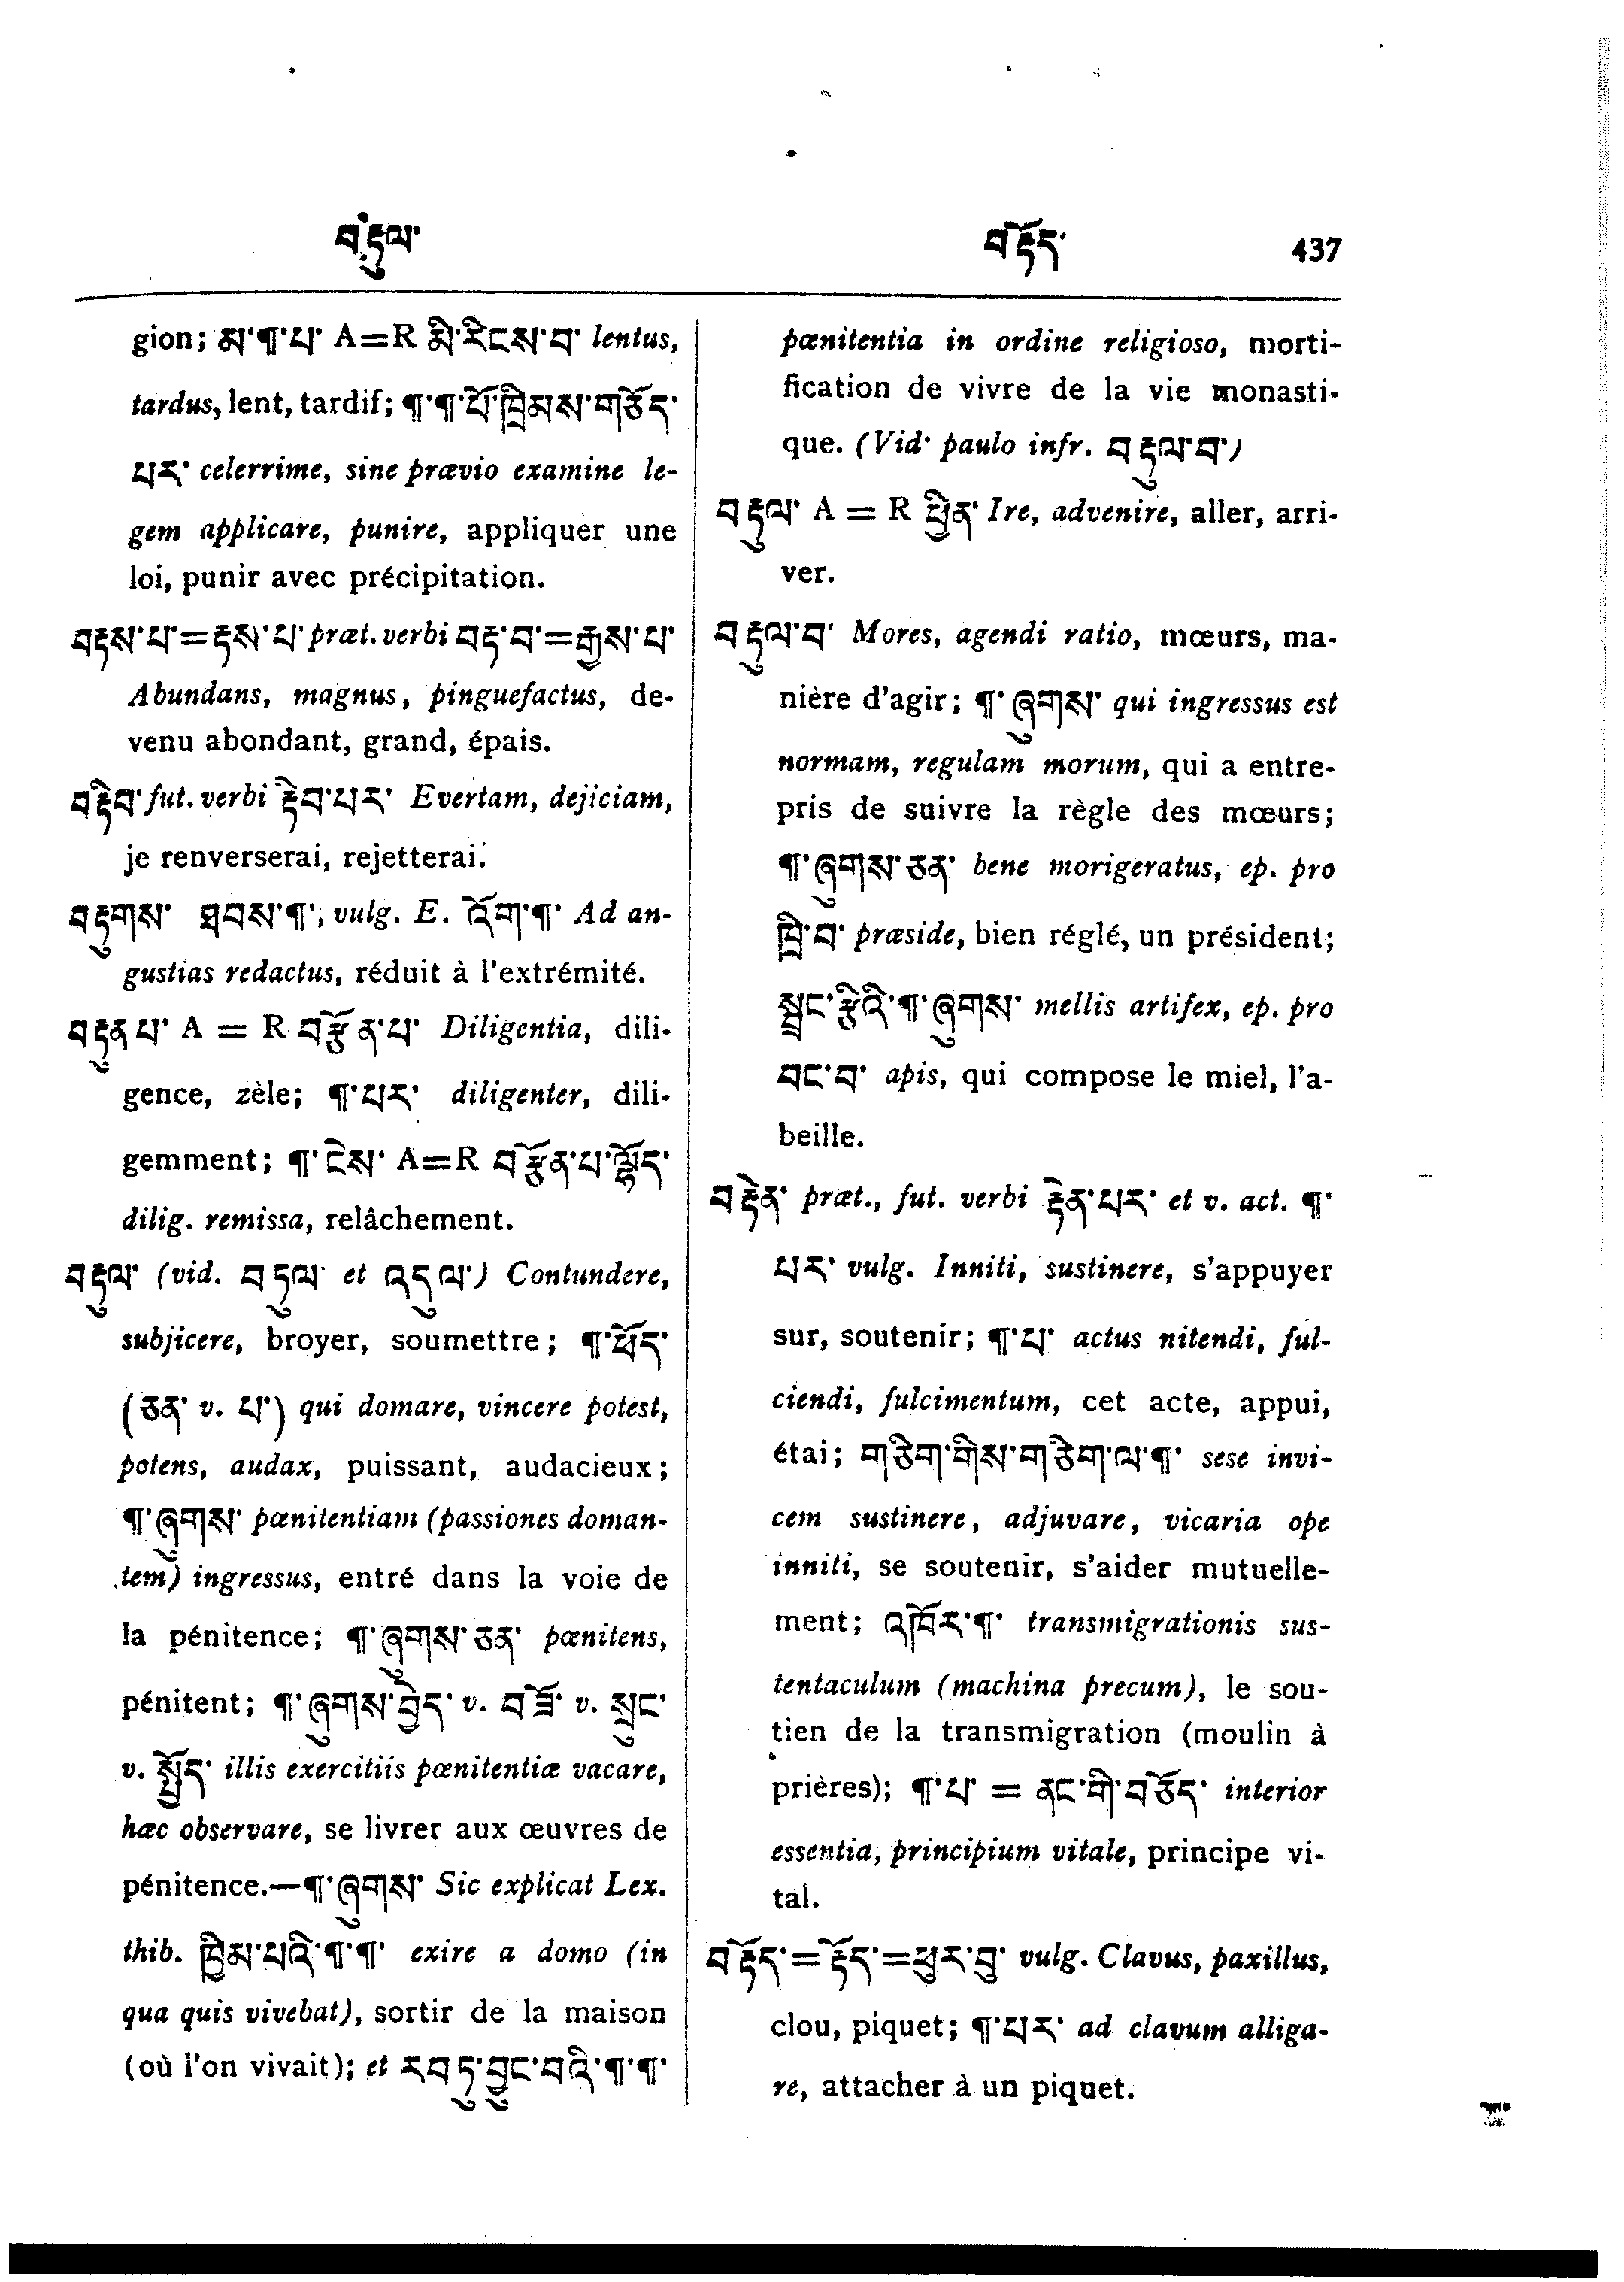 བརྟུལ་
བརྟོད་ 437
gion; མ་¶་པ་ A=R མི་རིངས་བ་ lentus,
tardus, lent, tardif; ¶་¶་པོ་ཁྲིམས་གཅོད་
པར་ celerrime, sine prævio examine le-
gem applicare, punire, appliquer une
loi, punir avec précipitation.
བརྟས་པ་=རྟས་པ་ præt. verbi བརྟ་བ་=རྒྱས་པ་
Abundans, magnus, pinguefactus, de-
venu abondant, grand, épais.
བརྟིབ་ fut. verbi རྟིབ་པར་ Evertam, dejiciam,
je renverserai, rejetterai.
བརྟུགས་ ཐབས་¶་, vulg. E. འོག་¶་ Ad an-
gustias redactus, réduit à l'extrémité.
བརྟུན་པ་ A = R བརྩོན་པ་ Diligentia, dili-
gence, zèle; ¶་པར་ diligenter, dili-
gemment; ¶་ངེས་ A=R བརྩོན་པ་ལྷོད་
dilig. remissa, relâchement.
བརྟུལ་ (vid. བཏུལ་ et འདུལ་) Contundere,
subjicere, broyer, soumettre; ¶་ཕོད་
(ཅན་ v. པ་) qui domare, vincere potest,
potens, audax, puissant, audacieux;
¶་ཞུགས་ pœnitentiam (passiones doman-
tem) ingressus, entré dans la voie de
la pénitence; ¶་ཞུགས་ཅན་ pœnitens,
pénitent; ¶་ཞུགས་བྱེད་ v. བཟོ་ v. སྲུང་
v. སྤྱོད་ illis exercitiis pœnitentiæ vacare,
hæc observare, se livrer aux œuvres de
pénitence.—¶་ཞུགས་ Sic explicat Lex.
thib. ཁྱིམ་པའི་¶་¶་ exire a domo (in
qua quis vivebat), sortir de la maison
(où l'on vivait); et རབ་ཏུ་བྱུང་བའི་¶་¶་
pœnitentia in ordine religioso, morti-
fication de vivre de la vie monasti-
que. (Vid. paulo infr. བརྟུལ་བ་)
བརྟུལ་ A = R ཕྱིན་ Ire, advenire, aller, arri-
ver.
བརྟུལ་བ་ Mores, agendi ratio, mœurs, ma-
nière d'agir; ¶་ཞུགས་ qui ingressus est
normam, regulam morum, qui a entre-
pris de suivre la règle des mœurs;
¶་ཞུགས་ཅན་ bene morigeratus, ep. pro
ཁྲི་བ་ præside, bien réglé, un président;
སྦྲང་རྩིའི་¶་ཞུགས་ mellis artifex, ep. pro
བང་བ་ apis, qui compose le miel, l'a-
beille.
བརྟེན་ præt., fut. verbi རྟེན་པར་ et v. act. ¶་
པར་ vulg. Inniti, sustinere, s'appuyer
sur, soutenir; ¶་པ་ actus nitendi, ful-
ciendi, fulcimentum, cet acte, appui,
étai; གཅིག་གིས་གཅིག་ལ་¶་ sese invi-
cem sustinere, adjuvare, vicaria ope
inniti, se soutenir, s'aider mutuelle-
ment; འཁོར་¶་ transmigrationis sus-
tentaculum (machina precum), le sou-
tien de la transmigration (moulin à
prières); ¶་པ་ = ནང་གི་བཅོད་ interior
essentia, principium vitale, principe vi-
tal.
བརྟོད་=རྟོད་=ཕུར་བུ་ vulg. Clavus, paxillus,
clou, piquet; ¶་པར་ ad clavum alliga-
re, attacher à un piquet.